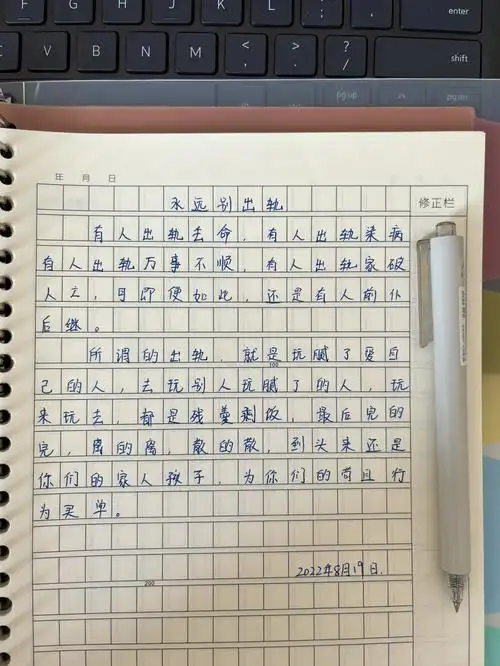 enter
C V B N M < , > . ? / shift
pg up pg dn
年 月 日
永远别出轨
修正栏
有人出轨丢命，有人出轨染病
有人出轨万事不顺，有人出轨家破
人亡，可即便如此，还是有人前仆
后继。
所谓的出轨，就是玩腻了爱自
100
己的人，去玩别人玩腻了的人，玩
来玩去，都是残羹剩饭，最后完的
完，离的离，散的散，到头来还是
你们的家人孩子，为你们的苟且行
为买单。
2022年8月19日.
200